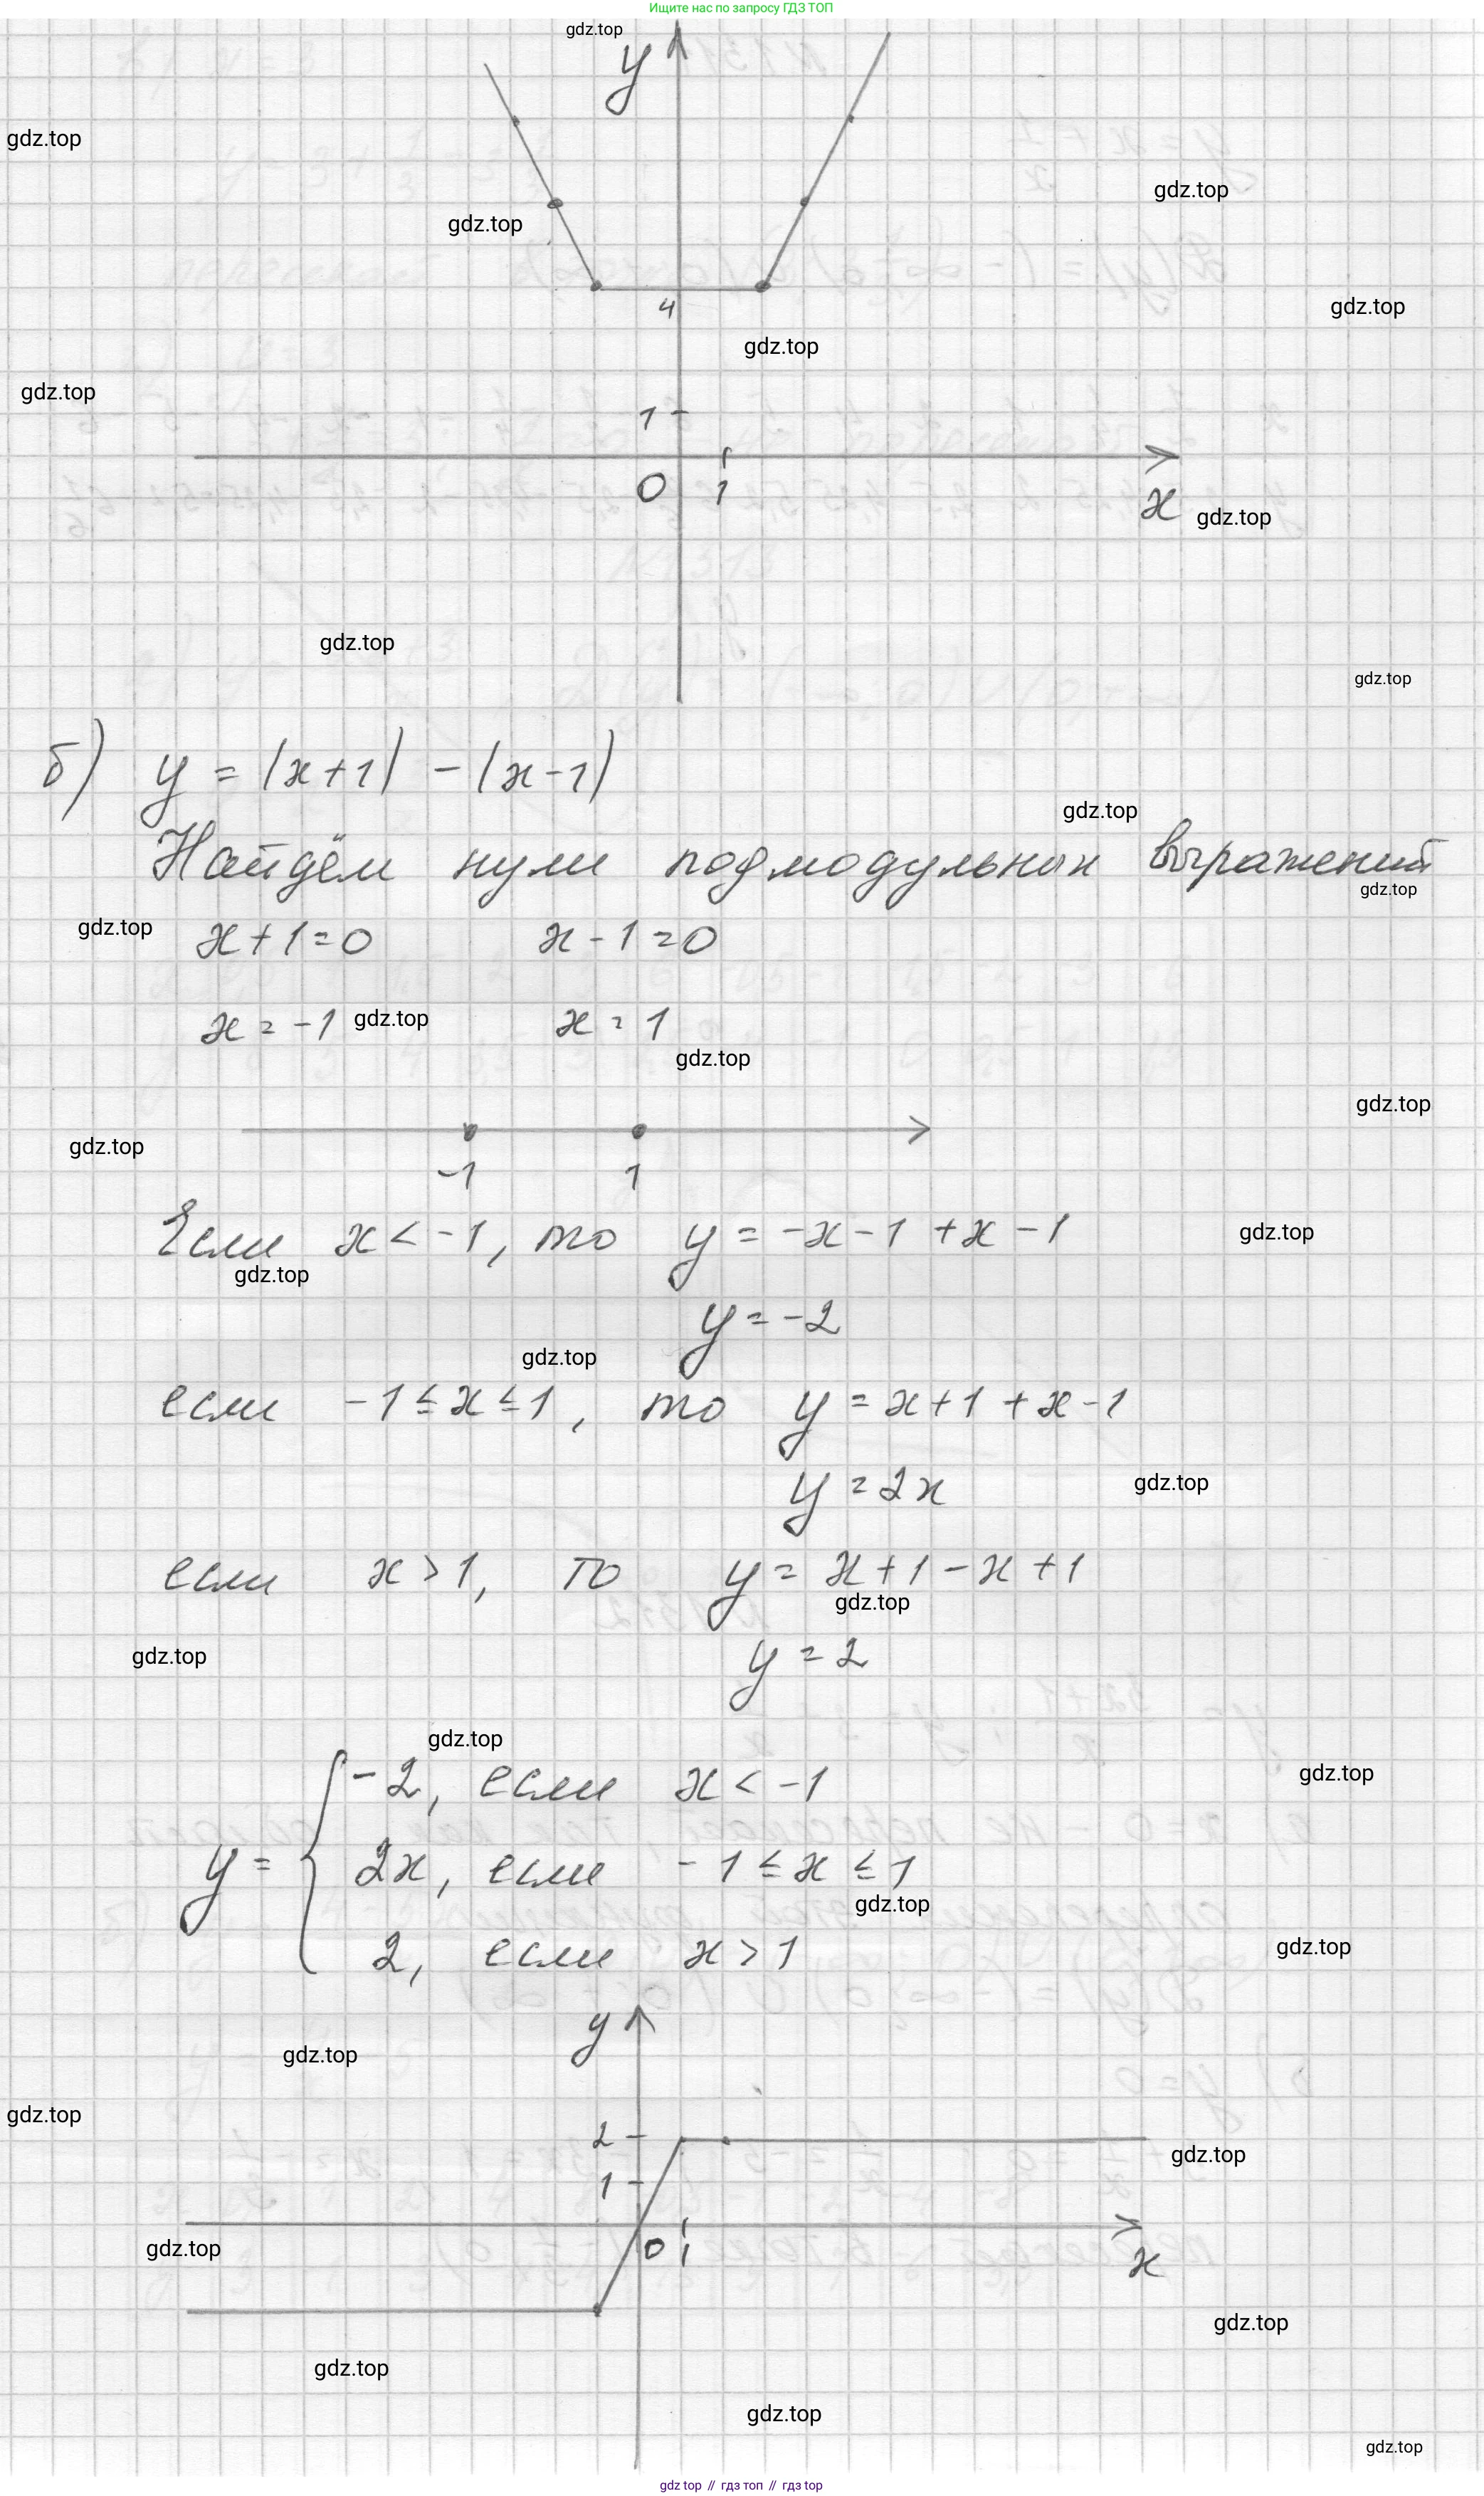 Ищите нас по запросу ГДЗ ТОП
gdz.top
y
gdz.top
gdz.top
gdz.top
4
gdz.top
gdz.top
gdz.top
1
0 1
x
gdz.top
gdz.top
gdz.top
б) y = |x+1| - |x-1|
gdz.top
Найдём нули подмодульных выражений
gdz.top
gdz.top
x+1=0 x-1=0
x = -1 x = 1
gdz.top
gdz.top
gdz.top
gdz.top
-1 1
Если x < -1, то y = -x-1 +x -1
gdz.top
gdz.top
y = -2
gdz.top
если -1 ≤ x ≤ 1, то y = x+1 +x-1
y = 2x
gdz.top
если x > 1, то y = x+1 -x +1
gdz.top
y = 2
gdz.top
gdz.top
gdz.top
y = { -2, если x < -1
2x, если -1 ≤ x ≤ 1
gdz.top
2, если x > 1
gdz.top
y
gdz.top
gdz.top
2
gdz.top
1
0 1
gdz.top
x
gdz.top
gdz.top
gdz.top
gdz.top
gdz top // гдз топ // гдз top